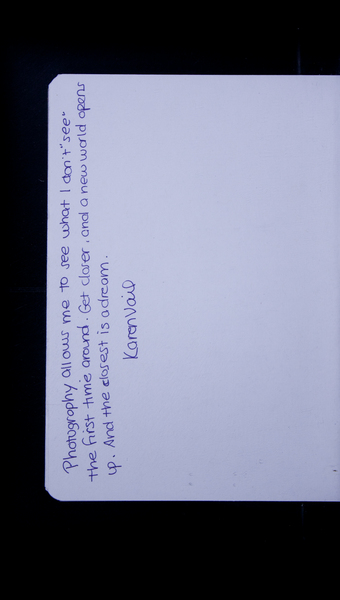 Photography allows me to see what I don't "see"
the first time around. Get closer, and a new world opens
up. And the closest is a dream.
Karen Vail